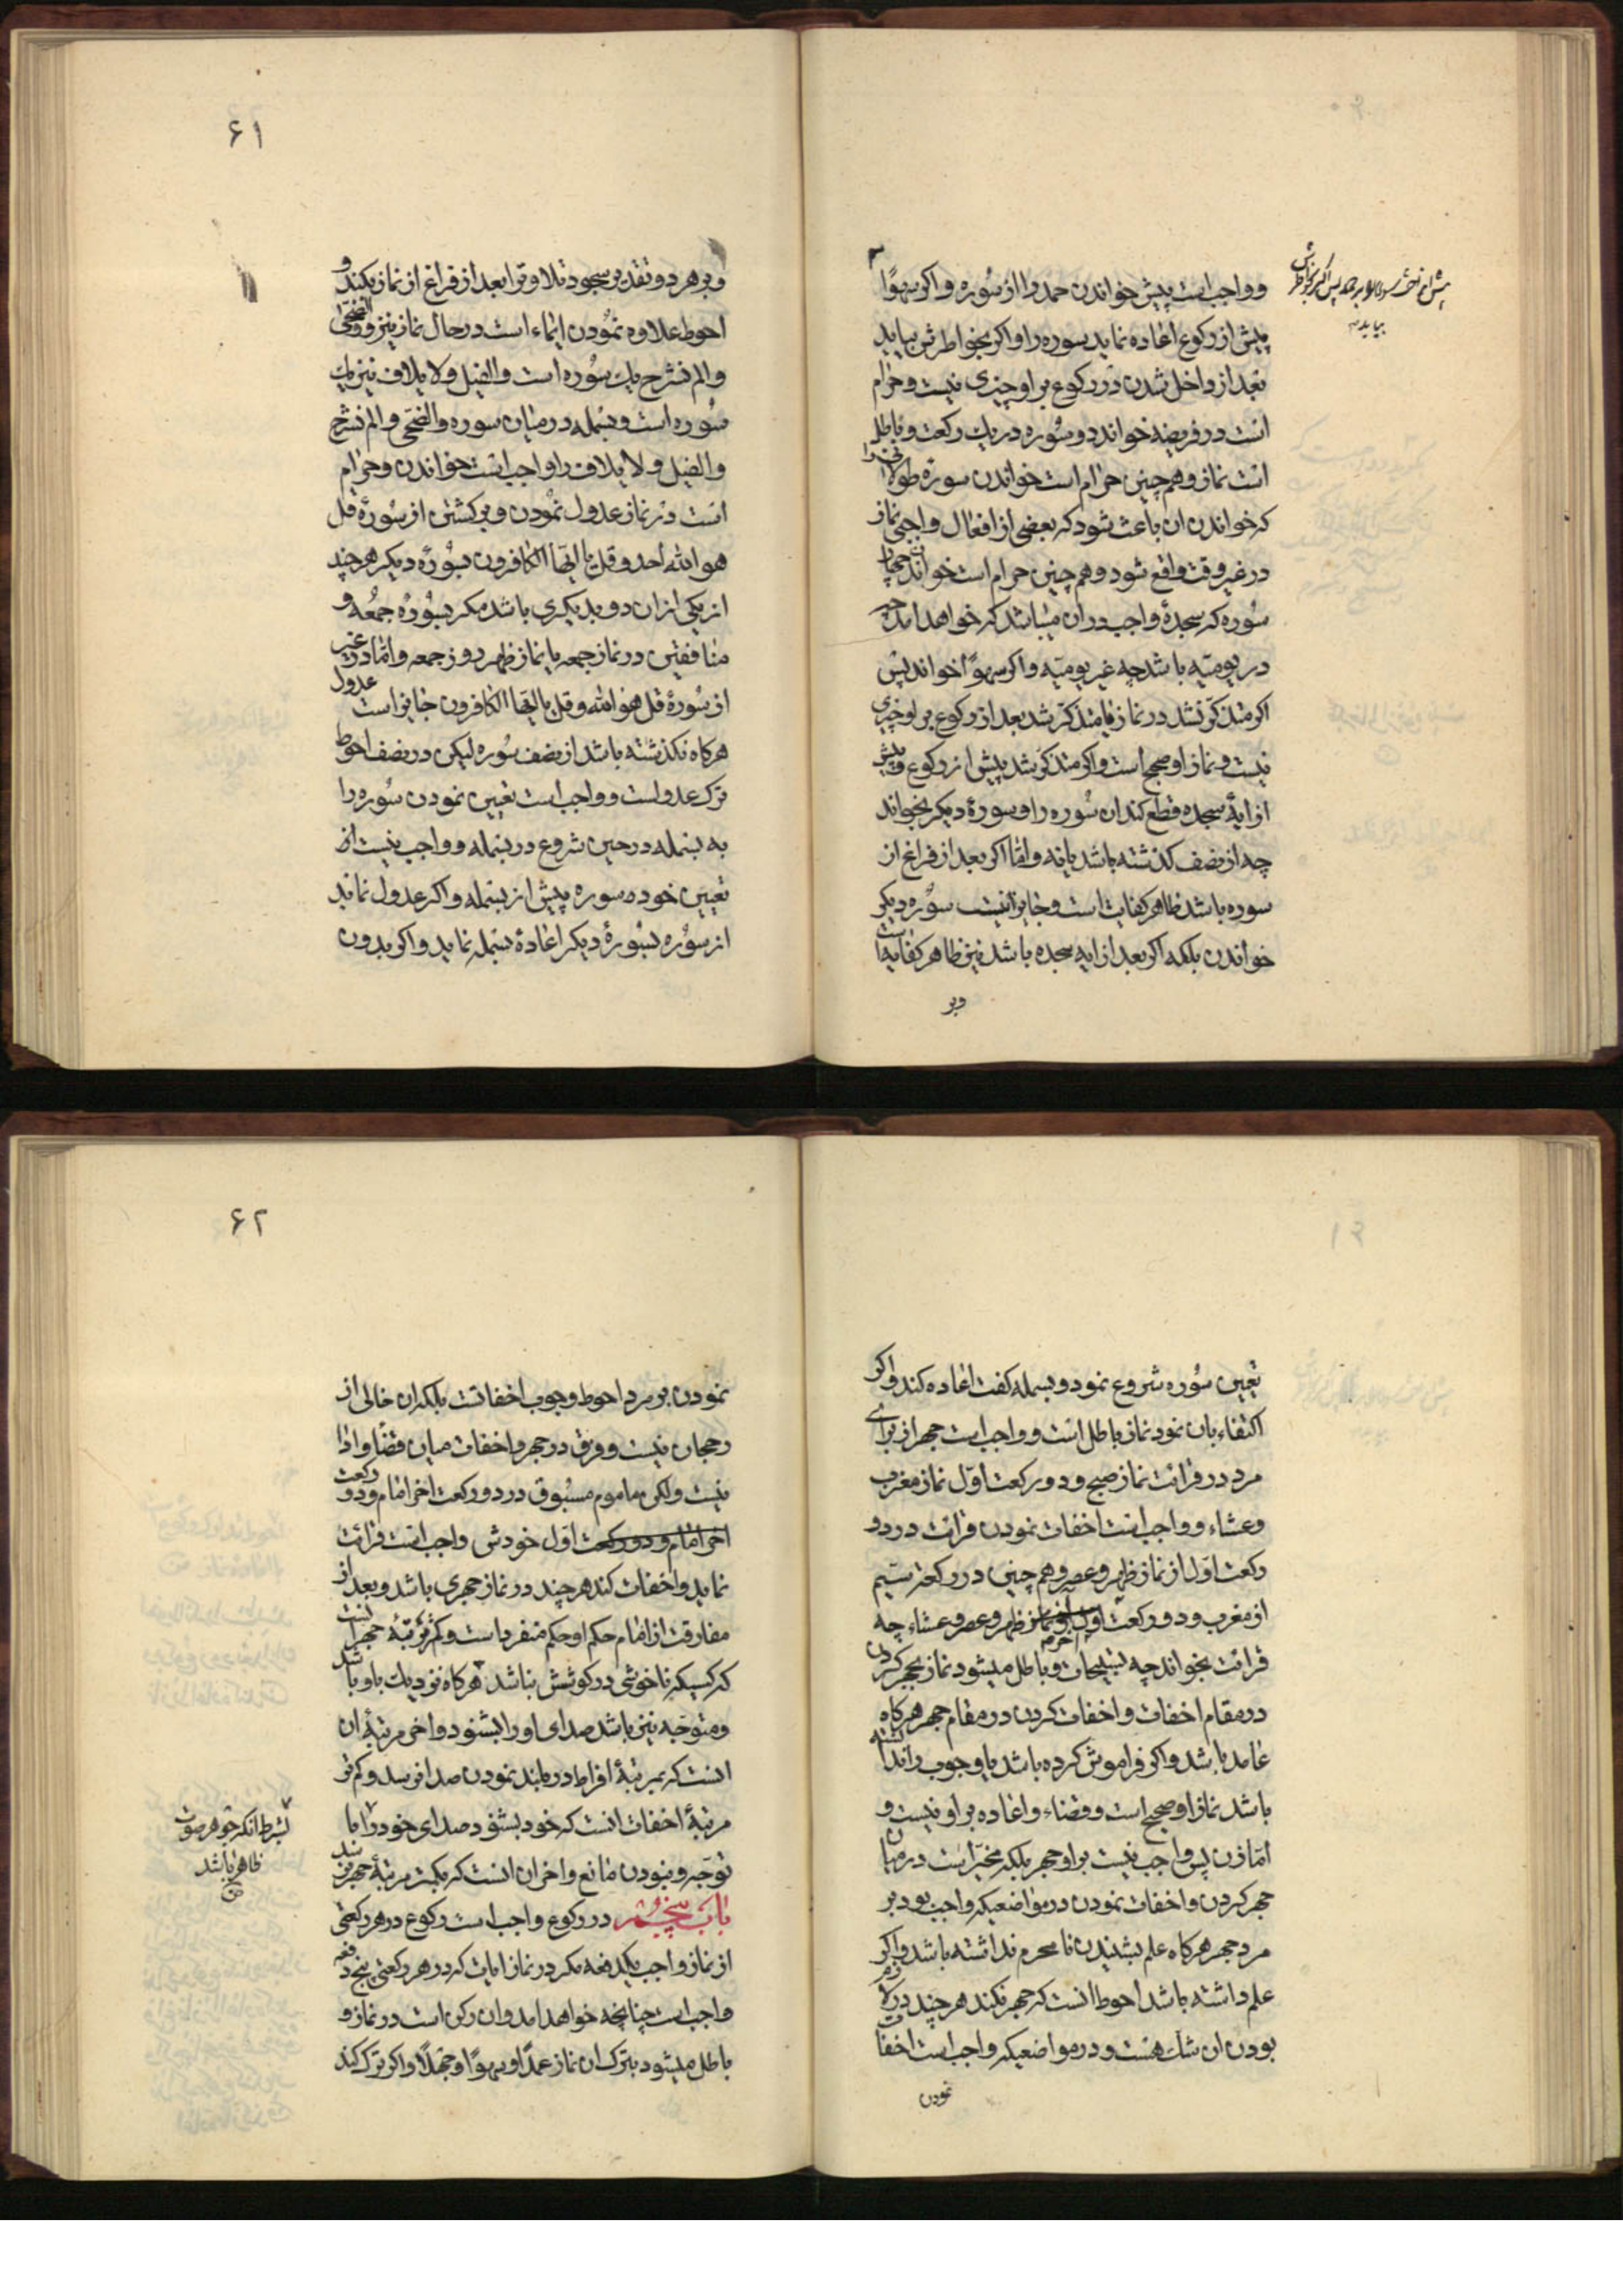 و واجب است پیش خواندن حمد را از سوره و اکر سهوًا
بیاید
پیش از رکوع اعاده نماید سوره را و اکر بخواطرش بیاید
بعد از داخل شدن در رکوع بر او چیزی نیست و حرام
است در فریضه خواند دو سوره در یك رکعت و باطل
است نماز و هم چنین حرام است خواندن سورۀ طولانی را
که خواندن ان باعث شود که بعضی از افعال واجبی نماز
در غیر وقت واقع شود و هم چنین حرام است خواندن چهار
سوره که سجدۀ واجب در ان میباشد که خواهد امد چه
در یومیّه باشد چه غیر یومیّه و اکر سهوًا خواند پس
اکر متذکّر نشد در نماز یا متذکّر شد بعد از رکوع بر او چیزی
نیست و نماز او صحیح است و اکر متذکّر شد پیش از رکوع و پیش
از ایۀ سجده قطع کند ان سوره را و سورۀ دیکر بخواند
چه از نصف کذشته باشد یا نه و امّا اکر بعد از فراغ از
سوره باشد ظاهر کفایت است و جایز نیست سوره دیکر
خواندن بلکه اکر بعد از ایه سجده باشد نیز ظاهر کفایه است
و بر
۶۱
و بر هر دو تقدیر سجود تلاوترا بعد از فراغ از نماز بکند و
احوط علاوه نمودن ایماء است در حال نماز نیز و والضحی
و الم نشرح یك سوره است و الفیل و لایلاف نیز یك
سوره است و بسمله در میان سوره والضحی و الم نشرح
و الفیل و لایلاف را واجب است خواندن و حرام
است در نماز عدول نمودن و برکشتن از سورۀ قل
هو الله احد و قل یا ایّها الکافرون بسورۀ دیکر هر چند
از یکی از ان دو بدیکری باشد مکر بسورۀ جمعه و
منافقین در نماز جمعه یا نماز ظهر روز جمعه و امّا در غیر
از سورۀ قل هو الله و قل یا ایّها الکافرون عدول جایز است
هرکاه نکذشته باشد از نصف سوره لیکن در نصف احوط
ترك عدولست و واجب است تعیین نمودن سوره را
به بسمله در حین شروع در بسمله و واجب نیست از
تعیین خود سوره پیش از بسمله و اکر عدول نماید
از سوره بسورۀ دیکر اعادۀ بسمله نماید و اکر بدون
تعیین سوره شروع نمود و بسمله کفت اعاده کند و اکر
اکتفاء بان نمود نماز باطل است و واجب است جهر از برای
مرد در قرائت نماز صبح و دو رکعت اوّل نماز مغرب
و عشاء و واجب است اخفات نمودن قرائت در دو
رکعت اوّل از نماز ظهر و عصر و هم چنین در رکعت سیّم
از مغرب و دو رکعت اخر نماز ظهر و عصر و عشاء چه
قرائت بخواند چه تسبیحات و باطل میشود نماز بجهر کردن
در مقام اخفات و اخفات کردن در مقام جهر هرکاه
عامد باشد و اکر فراموش کرده باشد یا وجوب را ندانسته
باشد نماز او صحیح است و قضاء و اعاده بر او نیست و
امّا زن پس واجب نیست بر او جهر بلکه مخیّر است در میان
جهر کردن و اخفات نمودن در مواضعیکه واجب بود بر
مرد جهر هرکاه علم بشنیدن نامحرم نداشته باشد و اکر
علم داشته باشد احوط انست که جهر نکند هر چند در لازم
بودن ان شك هست و در مواضعیکه واجب است اخفات
نمودن
۶۲
نمودن بر مرد احوط وجوب اخفاتست بلکه ان خالی از
رجحان نیست و فرق در جهر و اخفات میان قضا و ادا
نیست ولکن ماموم مسبوق در دو رکعت اخر امام و دو رکعت
اخر امام و دو رکعت اوّل خودش واجب است قرائت
نماید و اخفات کند هر چند در نماز جهری باشد و بعد از
مفارقت از امام حکم او حکم منفرد است و کمتر مرتبۀ جهر انست
که کسیکه ناخوشی در کوشش نباشد هرکاه نزدیك باو باشد
و متوجّه نیز باشد صدای او را بشنود و اخر مرتبۀ ان
انست که بمرتبۀ افراط در بلند نمودن صدا نرسد و کم تر
مرتبۀ اخفات انست که خود بشنود صدای خود را با
توجّه و نبودن مانع و اخر ان انست که بکمتر مرتبۀ جهر نرسد
بشرط انکه جوهر صوت
ظاهر نباشد
صح
باب پنجم در رکوع واجب است رکوع در هر رکعتی
از نماز واجب یکدفعه مکر در نماز ایات که در هر رکعتی پنج دفعه
واجب است چنانچه خواهد امد و ان رکن است در نماز و
باطل میشود بترك ان نماز عمدًا و سهوًا و جهلًا و اکر ترك کند